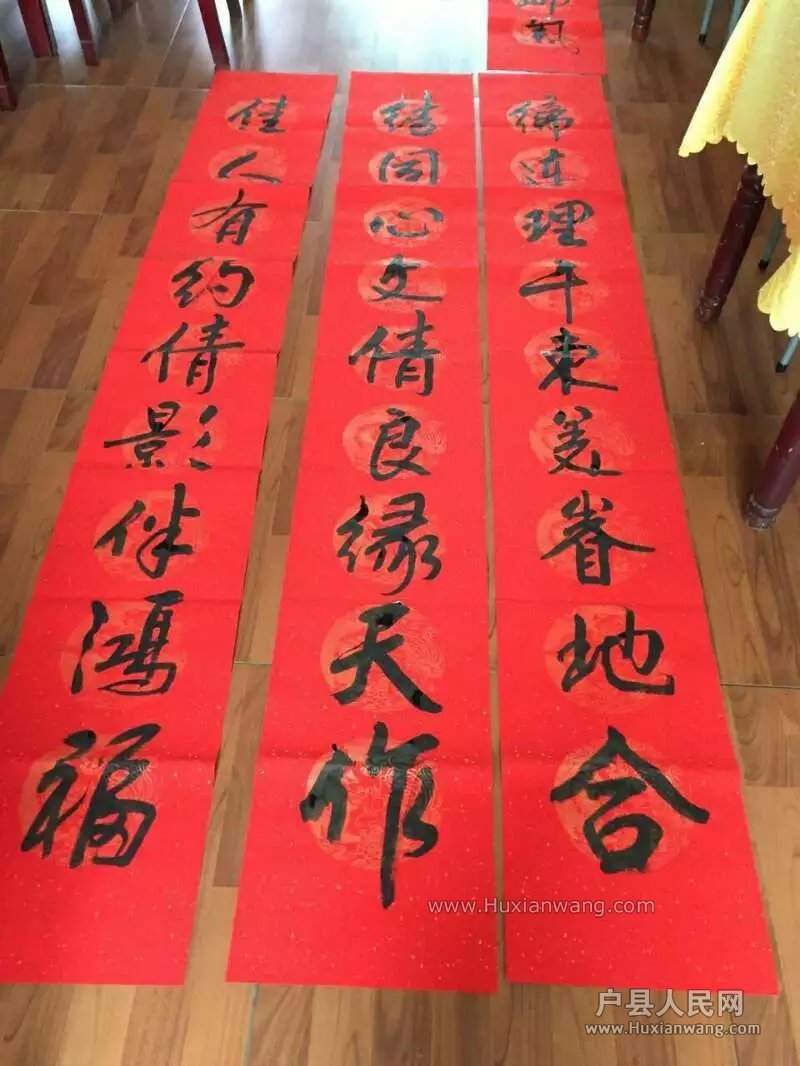 佳人有约倩影伴鸿福
结同心文倩良缘天作
缔连理東美眷地合
www.Huxianwang.com
户县人民网
www.Huxianwang.com